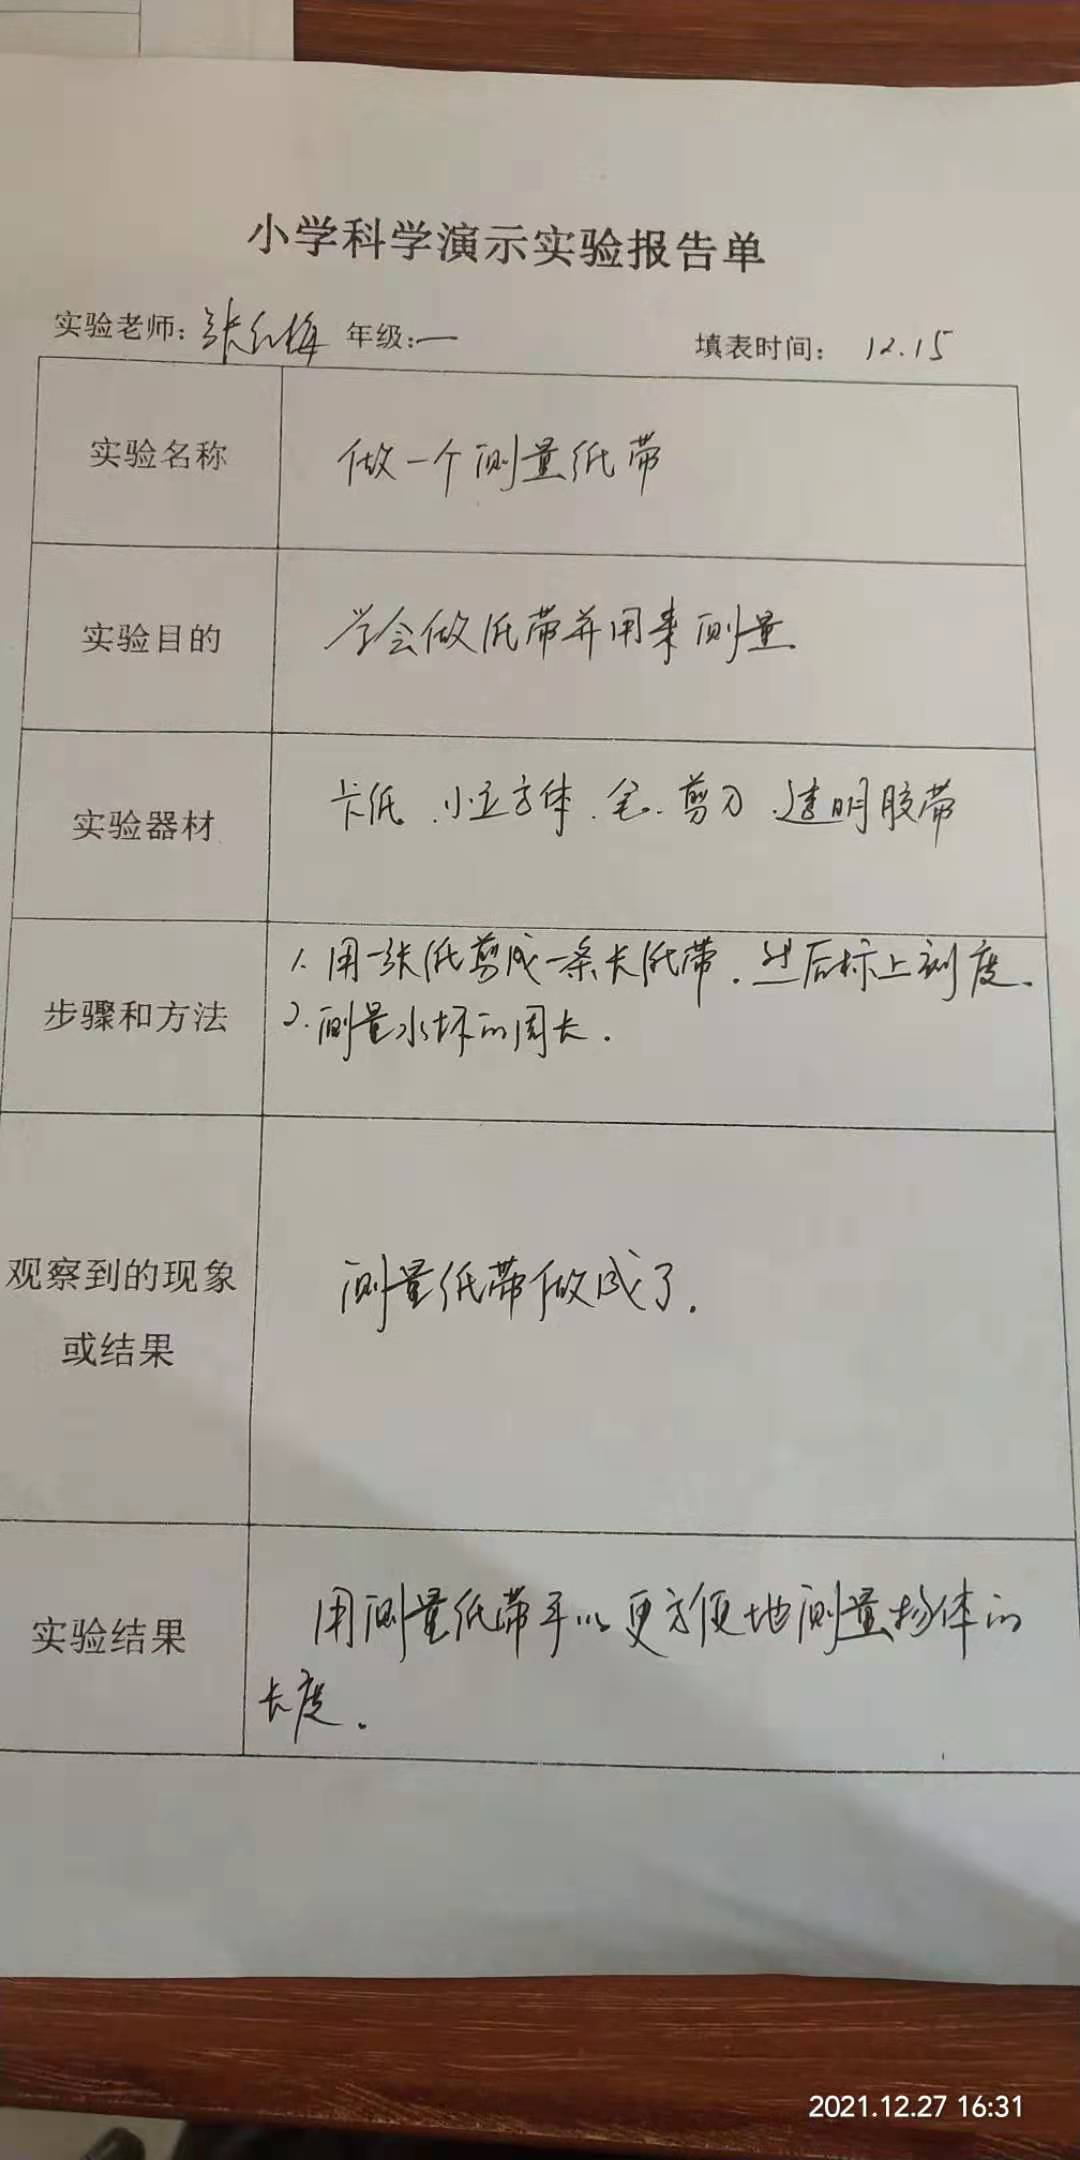 小学科学演示实验报告单
实验老师：张红梅 年级：一 填表时间： 12.15
实验名称 做一个测量纸带
实验目的 学会做纸带并用来测量
实验器材 卡纸、小立方体、笔、剪刀、透明胶带
步骤和方法
1. 用一张纸剪成一条长纸带，然后标上刻度。
2. 测量水杯的周长.
观察到的现象
或结果
测量纸带做成了.
实验结果
用测量纸带可以更方便地测量物体的
长度.
2021.12.27 16:31